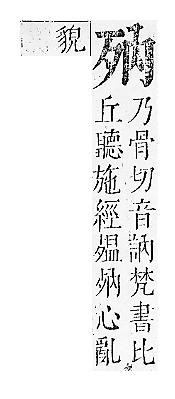 乃骨切音訥梵書比
丘聽施經殟
心亂
貌